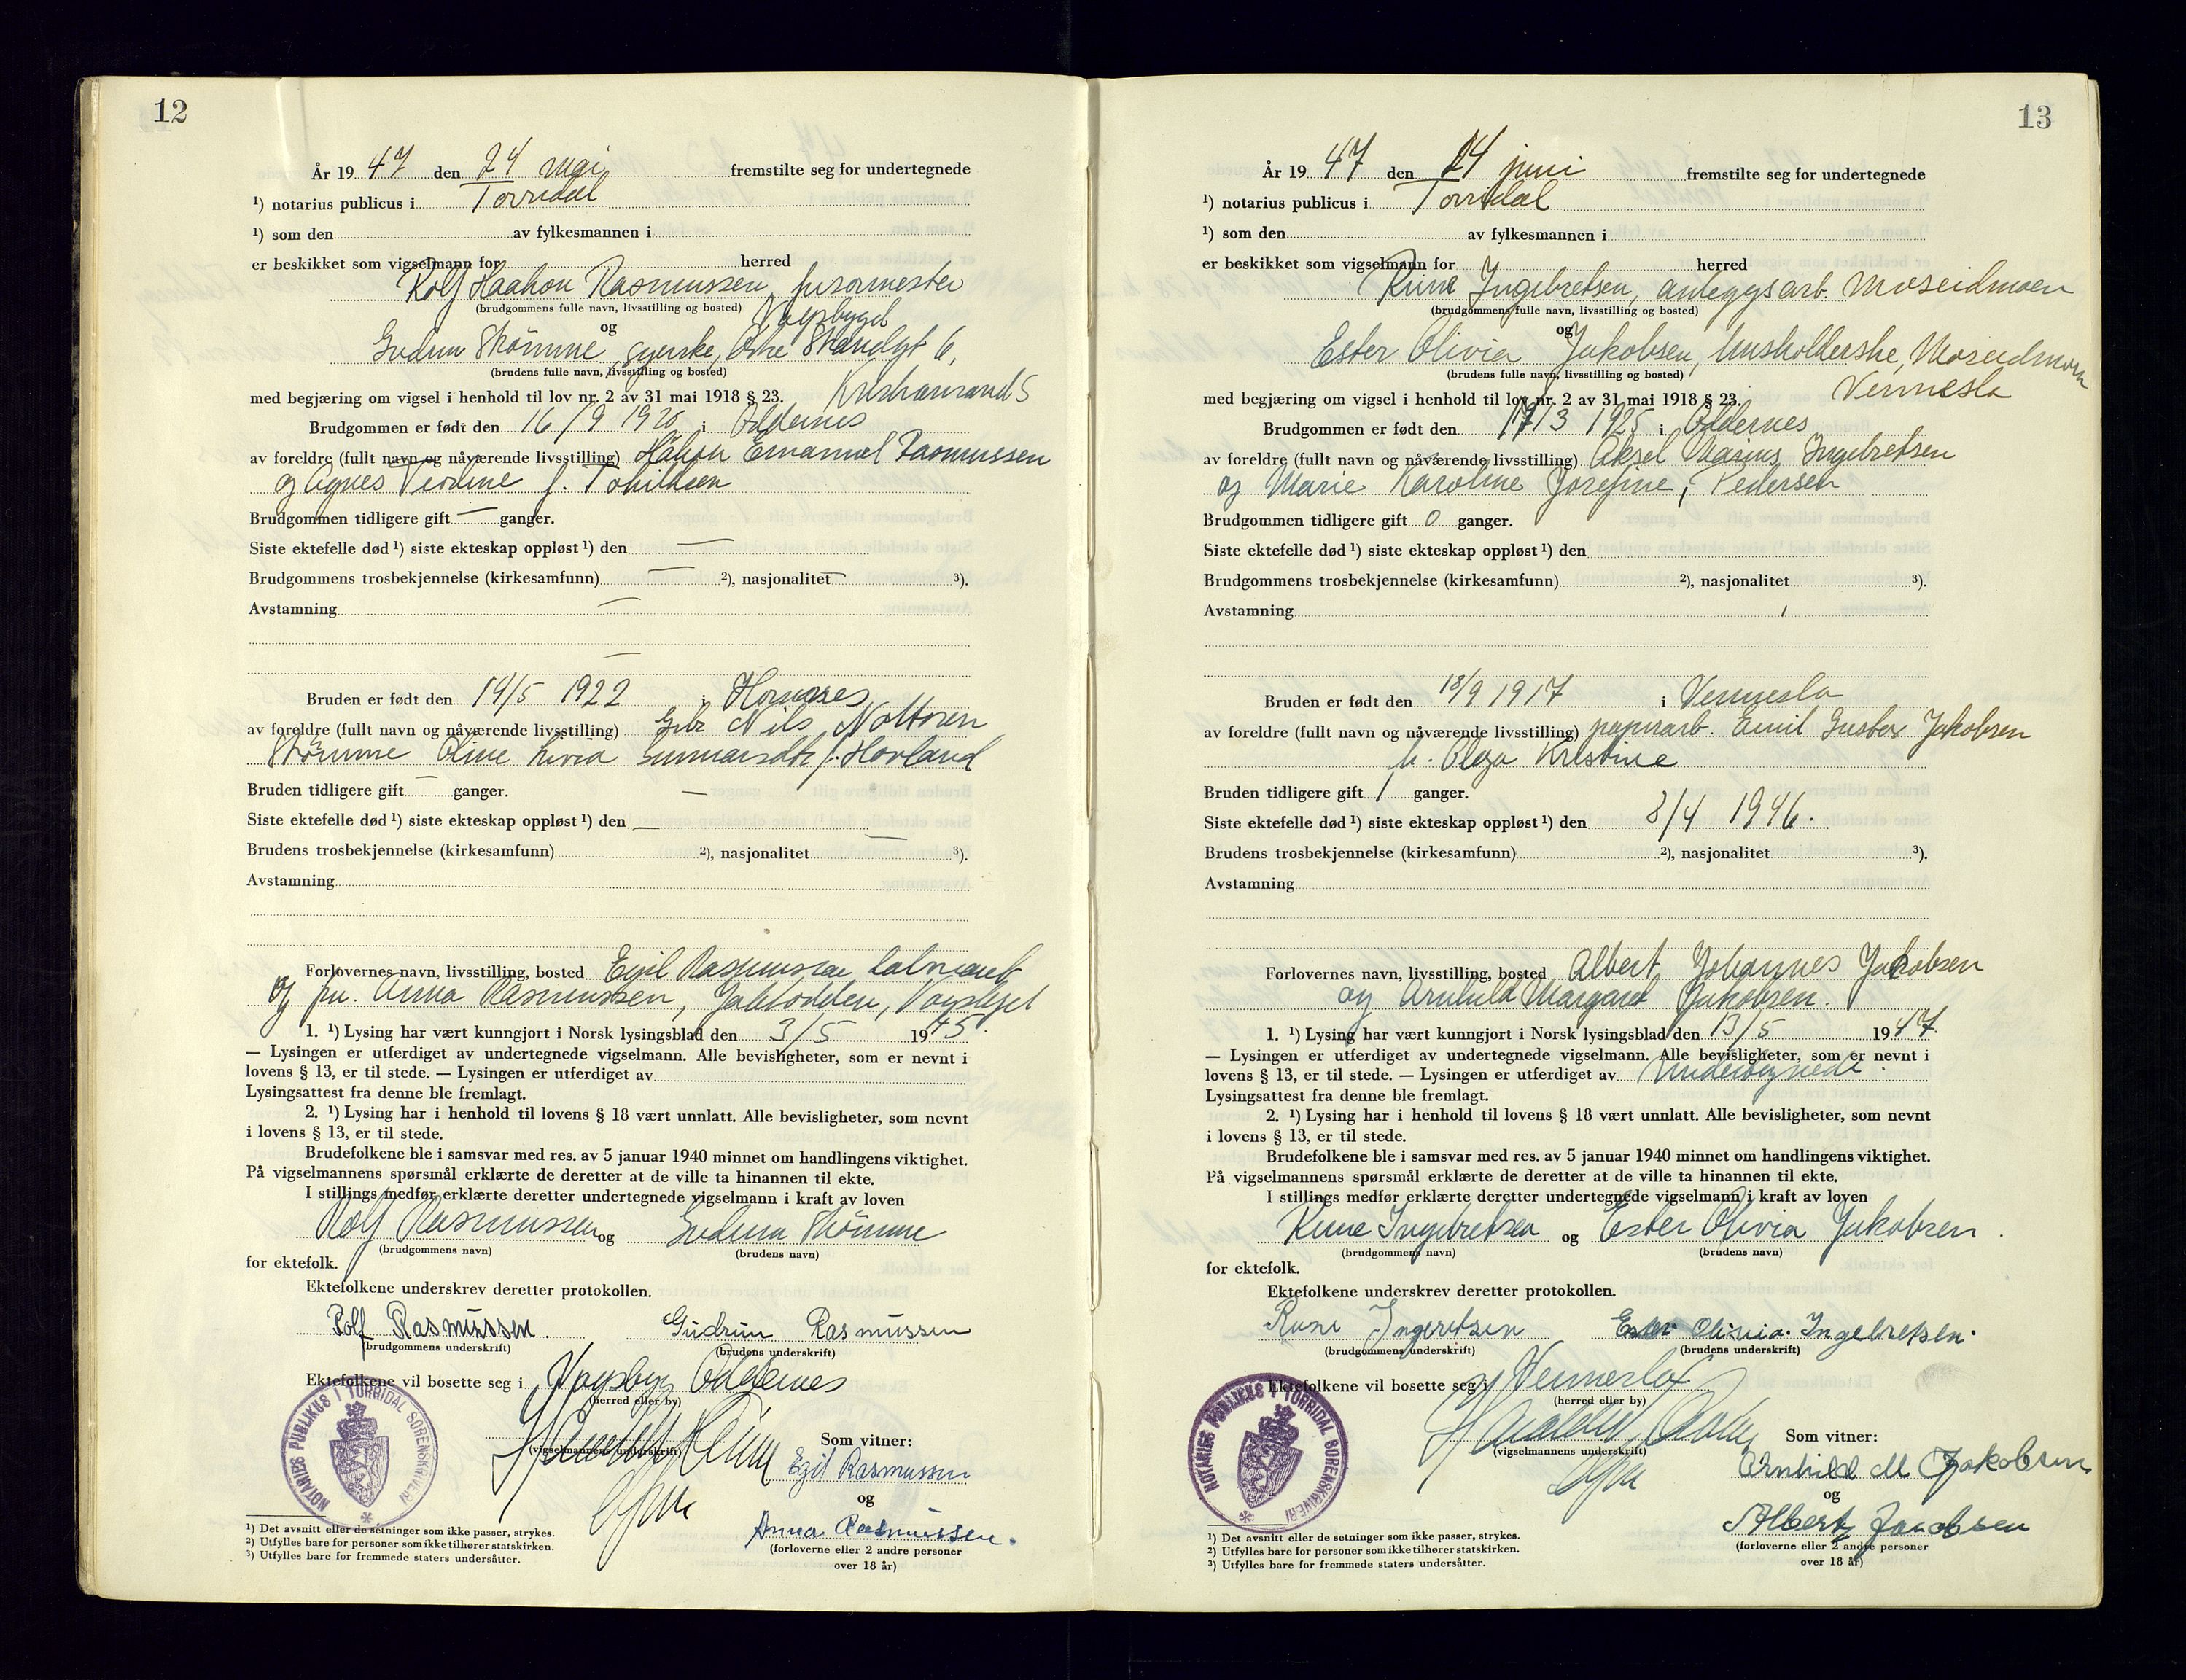 12
År 1947 den 24 mai fremstilte seg for undertegnede
¹) notarius publicus i Torridal
¹) som den av fylkesmannen i
er beskikket som vigselmann for herred
Rolf Haakon Rasmussen, murmester
(brudgommens fulle navn, livsstilling og bosted) Vågsbygd
og
Gudrun Strömme, syerske, Østre Strandgt 6,
(brudens fulle navn, livsstilling og bosted)
med begjæring om vigsel i henhold til lov nr. 2 av 31 mai 1918 § 23. Kristiansand S
Brudgommen er født den 16/9 1920 i Oddernes
av foreldre (fullt navn og nåværende livsstilling) Håkon Emanuel Rasmussen
og Agnes f. Tobiassen
Brudgommen tidligere gift — ganger.
Siste ektefelle død ¹) siste ekteskap oppløst ¹) den —
Brudgommens trosbekjennelse (kirkesamfunn) — ²), nasjonalitet — ³).
Avstamning —
—
Bruden er født den 14/5 1922 i Hornnes
av foreldre (fullt navn og nåværende livsstilling) Gbr Nils
Strömme Oline f. Hovland
Bruden tidligere gift — ganger. —
Siste ektefelle død ¹) siste ekteskap oppløst ¹) den —
Brudens trosbekjennelse (kirkesamfunn) ²), nasjonalitet — ³).
Avstamning
Forlovernes navn, livsstilling, bosted Egil Rasmussen
og fru Anna Rasmussen, Vågsbygd
1. ¹) Lysing har vært kunngjort i Norsk lysingsblad den 3/5 1945.
— Lysingen er utferdiget av undertegnede vigselmann. Alle bevisligheter, som er nevnt i
lovens § 13, er til stede. — Lysingen er utferdiget av
Lysingsattest fra denne ble fremlagt.
2. ¹) Lysing har i henhold til lovens § 18 vært unnlatt. Alle bevisligheter, som nevnt
i lovens § 13, er til stede.
Brudefolkene ble i samsvar med res. av 5 januar 1940 minnet om handlingens viktighet.
På vigselmannens spørsmål erklærte de deretter at de ville ta hinannen til ekte.
I stillings medfør erklærte deretter undertegnede vigselmann i kraft av loven
Rolf Rasmussen og Gudrun Strömme
(brudgommens navn) (brudens navn)
for ektefolk.
Ektefolkene underskrev deretter protokollen.
Rolf Rasmussen. Gudrun Rasmussen
(brudgommens underskrift) (brudens underskrift)
Ektefolkene vil bosette seg i Vågsbygd Oddernes
(herred eller by)
(vigselmannens underskrift)
NOTARIUS PUBLIKUS I TORRIDAL SORENSKRIVERI
Som vitner:
Egil Rasmussen
og
Anna Rasmussen.
(forloverne eller 2 andre personer
over 18 år)
¹) Det avsnitt eller de setninger som ikke passer, strykes.
²) Utfylles bare for personer som ikke tilhører statskirken.
³) Utfylles bare for fremmede staters undersåtter.
13
År 1947 den 24 juni fremstilte seg for undertegnede
¹) notarius publicus i Torridal
¹) som den av fylkesmannen i
er beskikket som vigselmann for herred
Rune Ingebretsen, anleggsarb. Moseidmoen
(brudgommens fulle navn, livsstilling og bosted)
og
Ester Olivia Jakobsen, husholderske, Moseidmoen
(brudens fulle navn, livsstilling og bosted)
med begjæring om vigsel i henhold til lov nr. 2 av 31 mai 1918 § 23. Vennesla
Brudgommen er født den 17/3 1925 i Oddernes
av foreldre (fullt navn og nåværende livsstilling) Aksel Marius Ingebretsen
og Marie Karoline Josefine, Pedersen
Brudgommen tidligere gift 0 ganger.
Siste ektefelle død ¹) siste ekteskap oppløst ¹) den
Brudgommens trosbekjennelse (kirkesamfunn) ²), nasjonalitet ³).
Avstamning
Bruden er født den 18/9 1917 i Vennesla
av foreldre (fullt navn og nåværende livsstilling) papirarb. Emil Gustav Jakobsen
h. Olga Kristine
Bruden tidligere gift 1 ganger.
Siste ektefelle død ¹) siste ekteskap oppløst ¹) den 8/4 1946.
Brudens trosbekjennelse (kirkesamfunn) ²), nasjonalitet ³).
Avstamning
Forlovernes navn, livsstilling, bosted Albert Johannes Jakobsen
og Arnhild Margaret Jakobsen.
1. ¹) Lysing har vært kunngjort i Norsk lysingsblad den 13/5 1947.
— Lysingen er utferdiget av undertegnede vigselmann. Alle bevisligheter, som er nevnt i
lovens § 13, er til stede. — Lysingen er utferdiget av undertegnede.
Lysingsattest fra denne ble fremlagt.
2. ¹) Lysing har i henhold til lovens § 18 vært unnlatt. Alle bevisligheter, som nevnt
i lovens § 13, er til stede.
Brudefolkene ble i samsvar med res. av 5 januar 1940 minnet om handlingens viktighet.
På vigselmannens spørsmål erklærte de deretter at de ville ta hinannen til ekte.
I stillings medfør erklærte deretter undertegnede vigselmann i kraft av loven
Rune Ingebretsen og Ester Olivia Jakobsen.
(brudgommens navn) (brudens navn)
for ektefolk.
Ektefolkene underskrev deretter protokollen.
Rune Ingeretsen Ester Olivia. Ingebretsen.
(brudgommens underskrift) (brudens underskrift)
Ektefolkene vil bosette seg i Vennesla
(herred eller by)
(vigselmannens underskrift)
NOTARIUS PUBLIKUS I TORRIDAL SORENSKRIVERI
Som vitner:
Arnhild M Jakobsen
og
Albert Jacobsen
(forloverne eller 2 andre personer
over 18 år)
¹) Det avsnitt eller de setninger som ikke passer, strykes.
²) Utfylles bare for personer som ikke tilhører statskirken.
³) Utfylles bare for fremmede staters undersåtter.